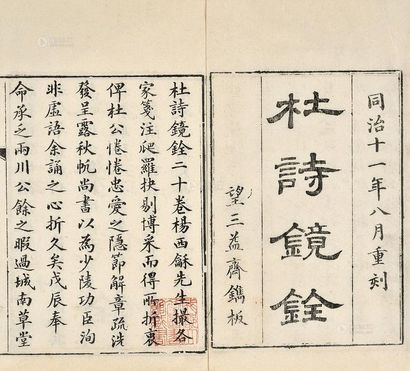 同治十一年八月重刻
杜詩鏡銓
望三益齊鐫板
杜詩鏡銓二十卷楊西龢先生撮各
家箋注爬羅抉剔博采而得所折衷
俾杜公惓惓忠愛之隱節解章疏洗
發呈露秋帆尚書以為少陵功臣洵
非虛語余誦之心折久矣戊辰奉
命承乏兩川公餘之暇過城南草堂